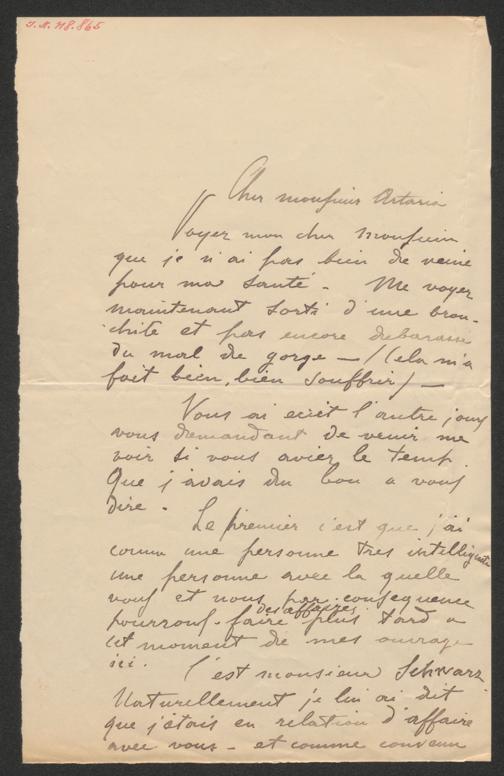 I.N. 118.865
Cher monsieur Artaria
Voyez mon cher monsieur
que je n'ai pas bien de veine
pour ma santé - Me voyez
maintenant sorti d'une bron-
chite et pas encore debarasse
du mal de gorge - (Cela m'a
fait bien, bien souffrir) -
Vous ai ecrit l'autre jour
vous demandant de venir me
voir si vous aviez le temp.
Que j'avais du bon a vous
dire -
Le premier c'est que j'ai
connu une personne tres intelligente
une personne avec la quelle
vous et nous par consequence
pourrons faire des affaires plus tard a
cet moment de mes ouvrage
ici. C'est monsieur Schwarz
Naturellement je lui ai dit
que j'étais en relation d'affaire
avec vous - et comme convenu